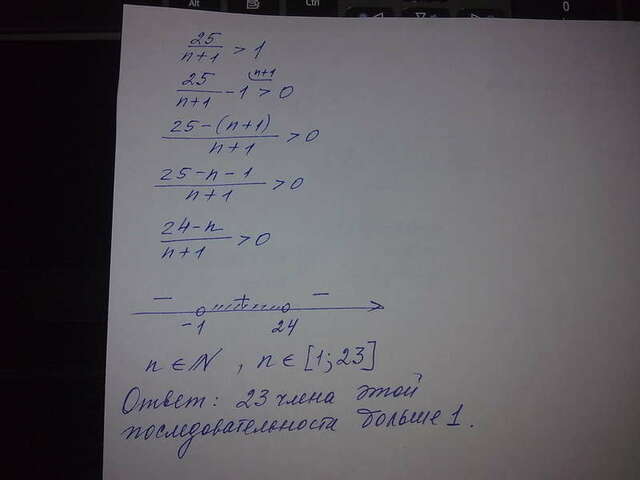 Alt
Ctrl
0
25/(n+1) > 1
25/(n+1) - 1 > 0
n+1
(25-(n+1))/(n+1) > 0
(25-n-1)/(n+1) > 0
(24-n)/(n+1) > 0
− + −
-1 24
n ∈ N , n ∈ [1; 23]
Ответ: 23 члена этой
последовательности больше 1.